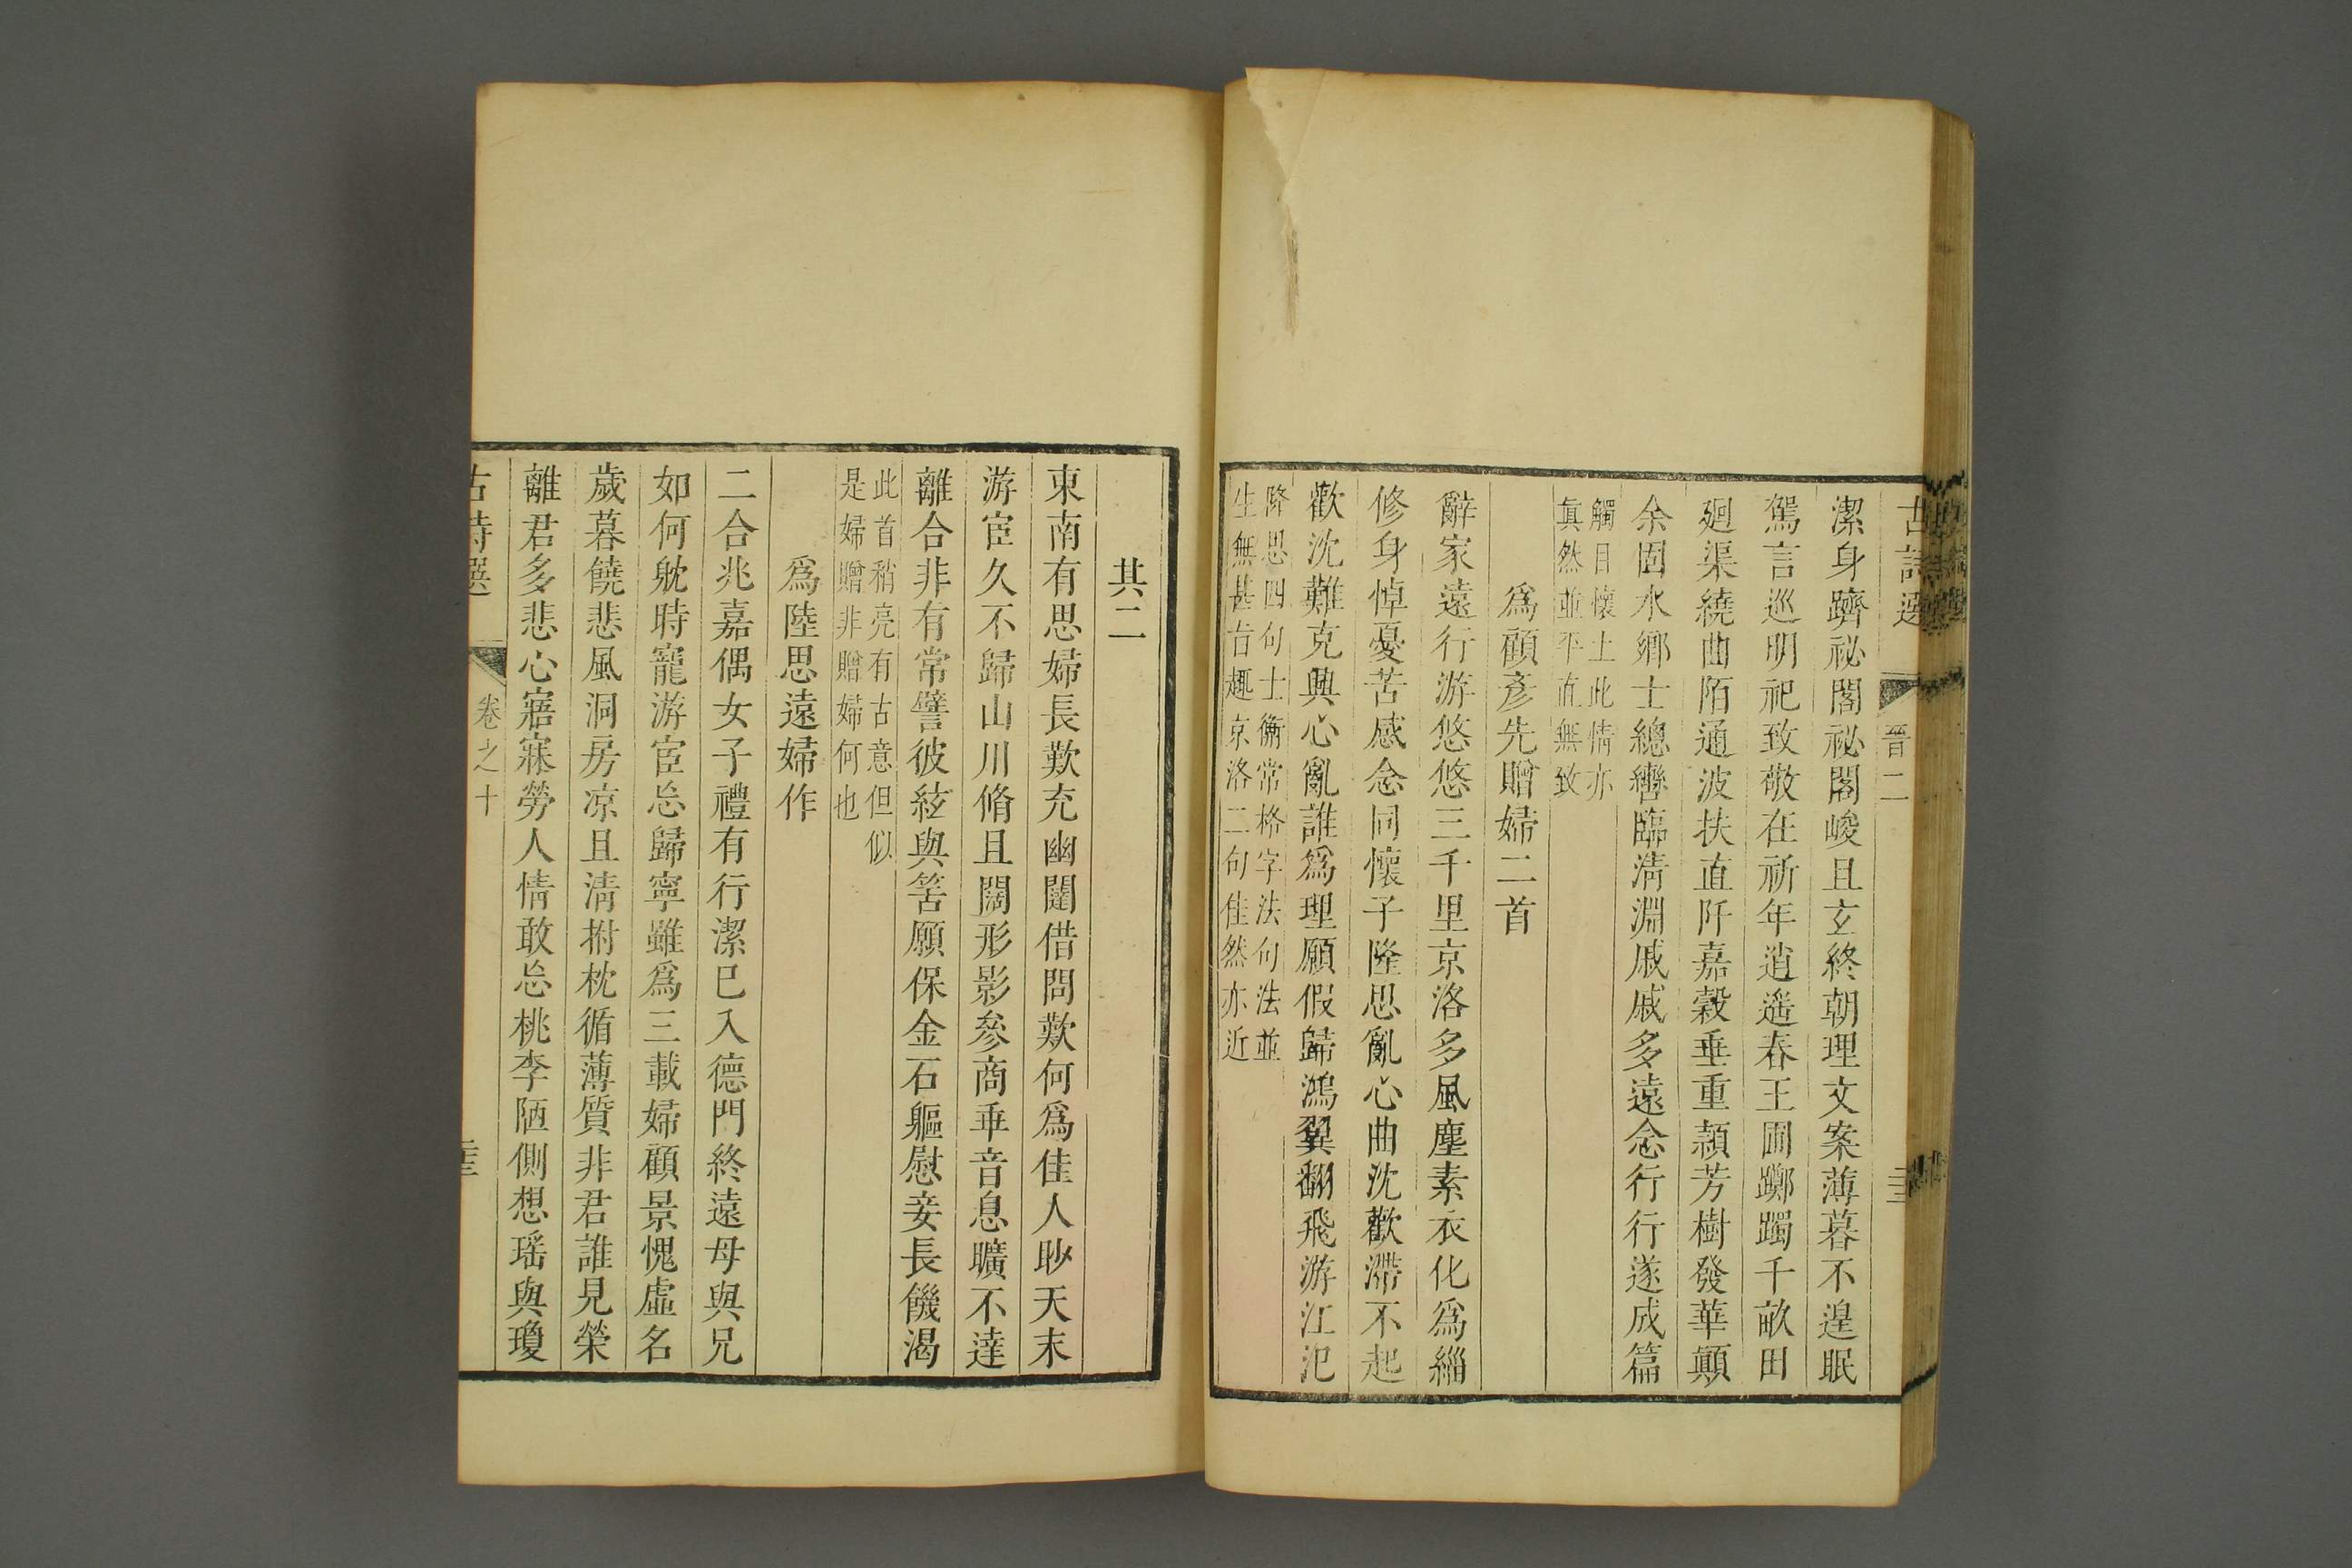 古詩選
晉二
潔身躋祕閣祕閣峻且玄終朝理文案薄暮不遑眠
駕言巡明祀致敬在祈年逍遙春王圃躑躅千畝田
廻渠繞曲陌通波扶直阡嘉穀垂重穎芳樹發華顛
余固水鄉士總轡臨淸淵戚戚多遠念行行遂成篇
觸目懷土此情亦
眞然並平直無致
爲顧彥先贈婦二首
辭家遠行游悠悠三千里京洛多風塵素衣化爲緇
修身悼憂苦感念同懷子隆思亂心曲沈歡滯不起
歡沈難克興心亂誰爲理願假歸鴻翼翻飛游江汜
隆思四句士衡常格字法句法並
生無甚古趣京洛二句佳然亦近
其二
東南有思婦長歎充幽闥借問歎何爲佳人眇天末
游宦久不歸山川脩且闊形影參商乖音息曠不達
離合非有常譬彼絃與筈願保金石軀慰妾長饑渴
此首稍亮有古意但似
是婦贈非贈婦何也
爲陸思遠婦作
二合兆嘉偶女子禮有行潔已入德門終遠母與兄
如何躭時寵游宦忘歸寧雖爲三載婦顧景愧虛名
歲暮饒悲風洞房凉且淸拊枕循薄質非君誰見榮
離君多悲心寤寐勞人情敢忘桃李陋側想瑤與瓊
古詩選
卷之十